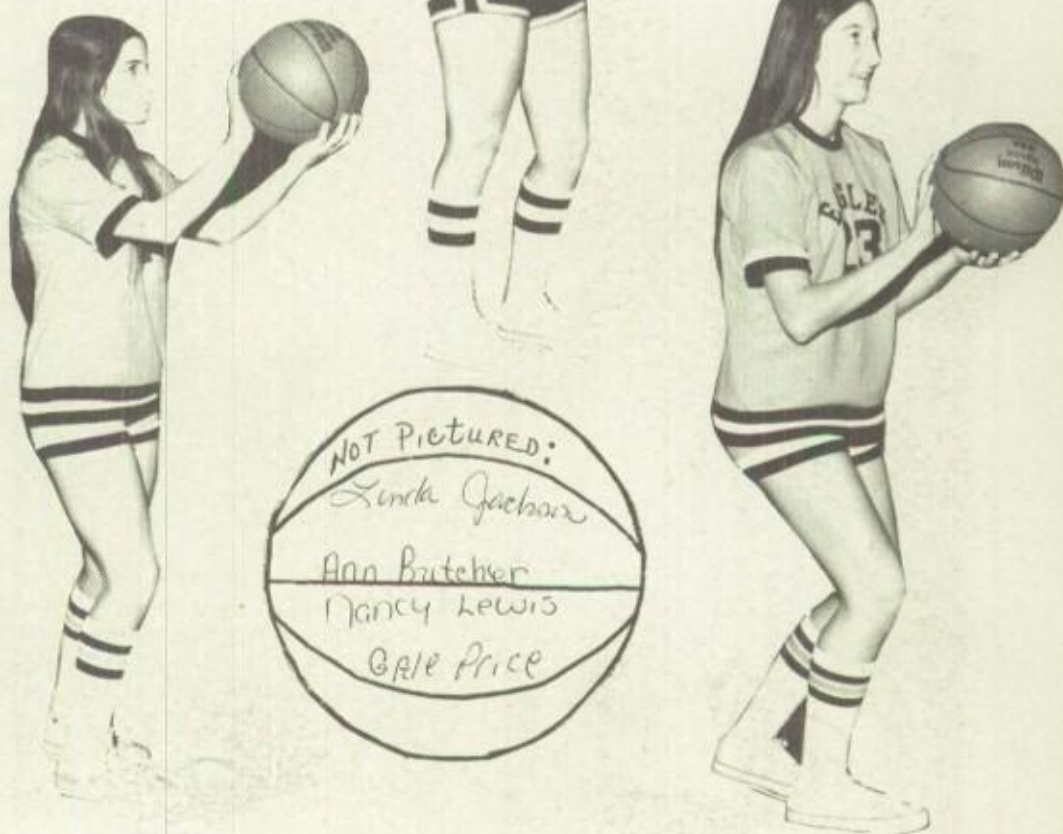 EAGLES
23
Wilson
NOT PICTURED:
Linda Jackson
Ann Butcher
Nancy Lewis
GAle Price